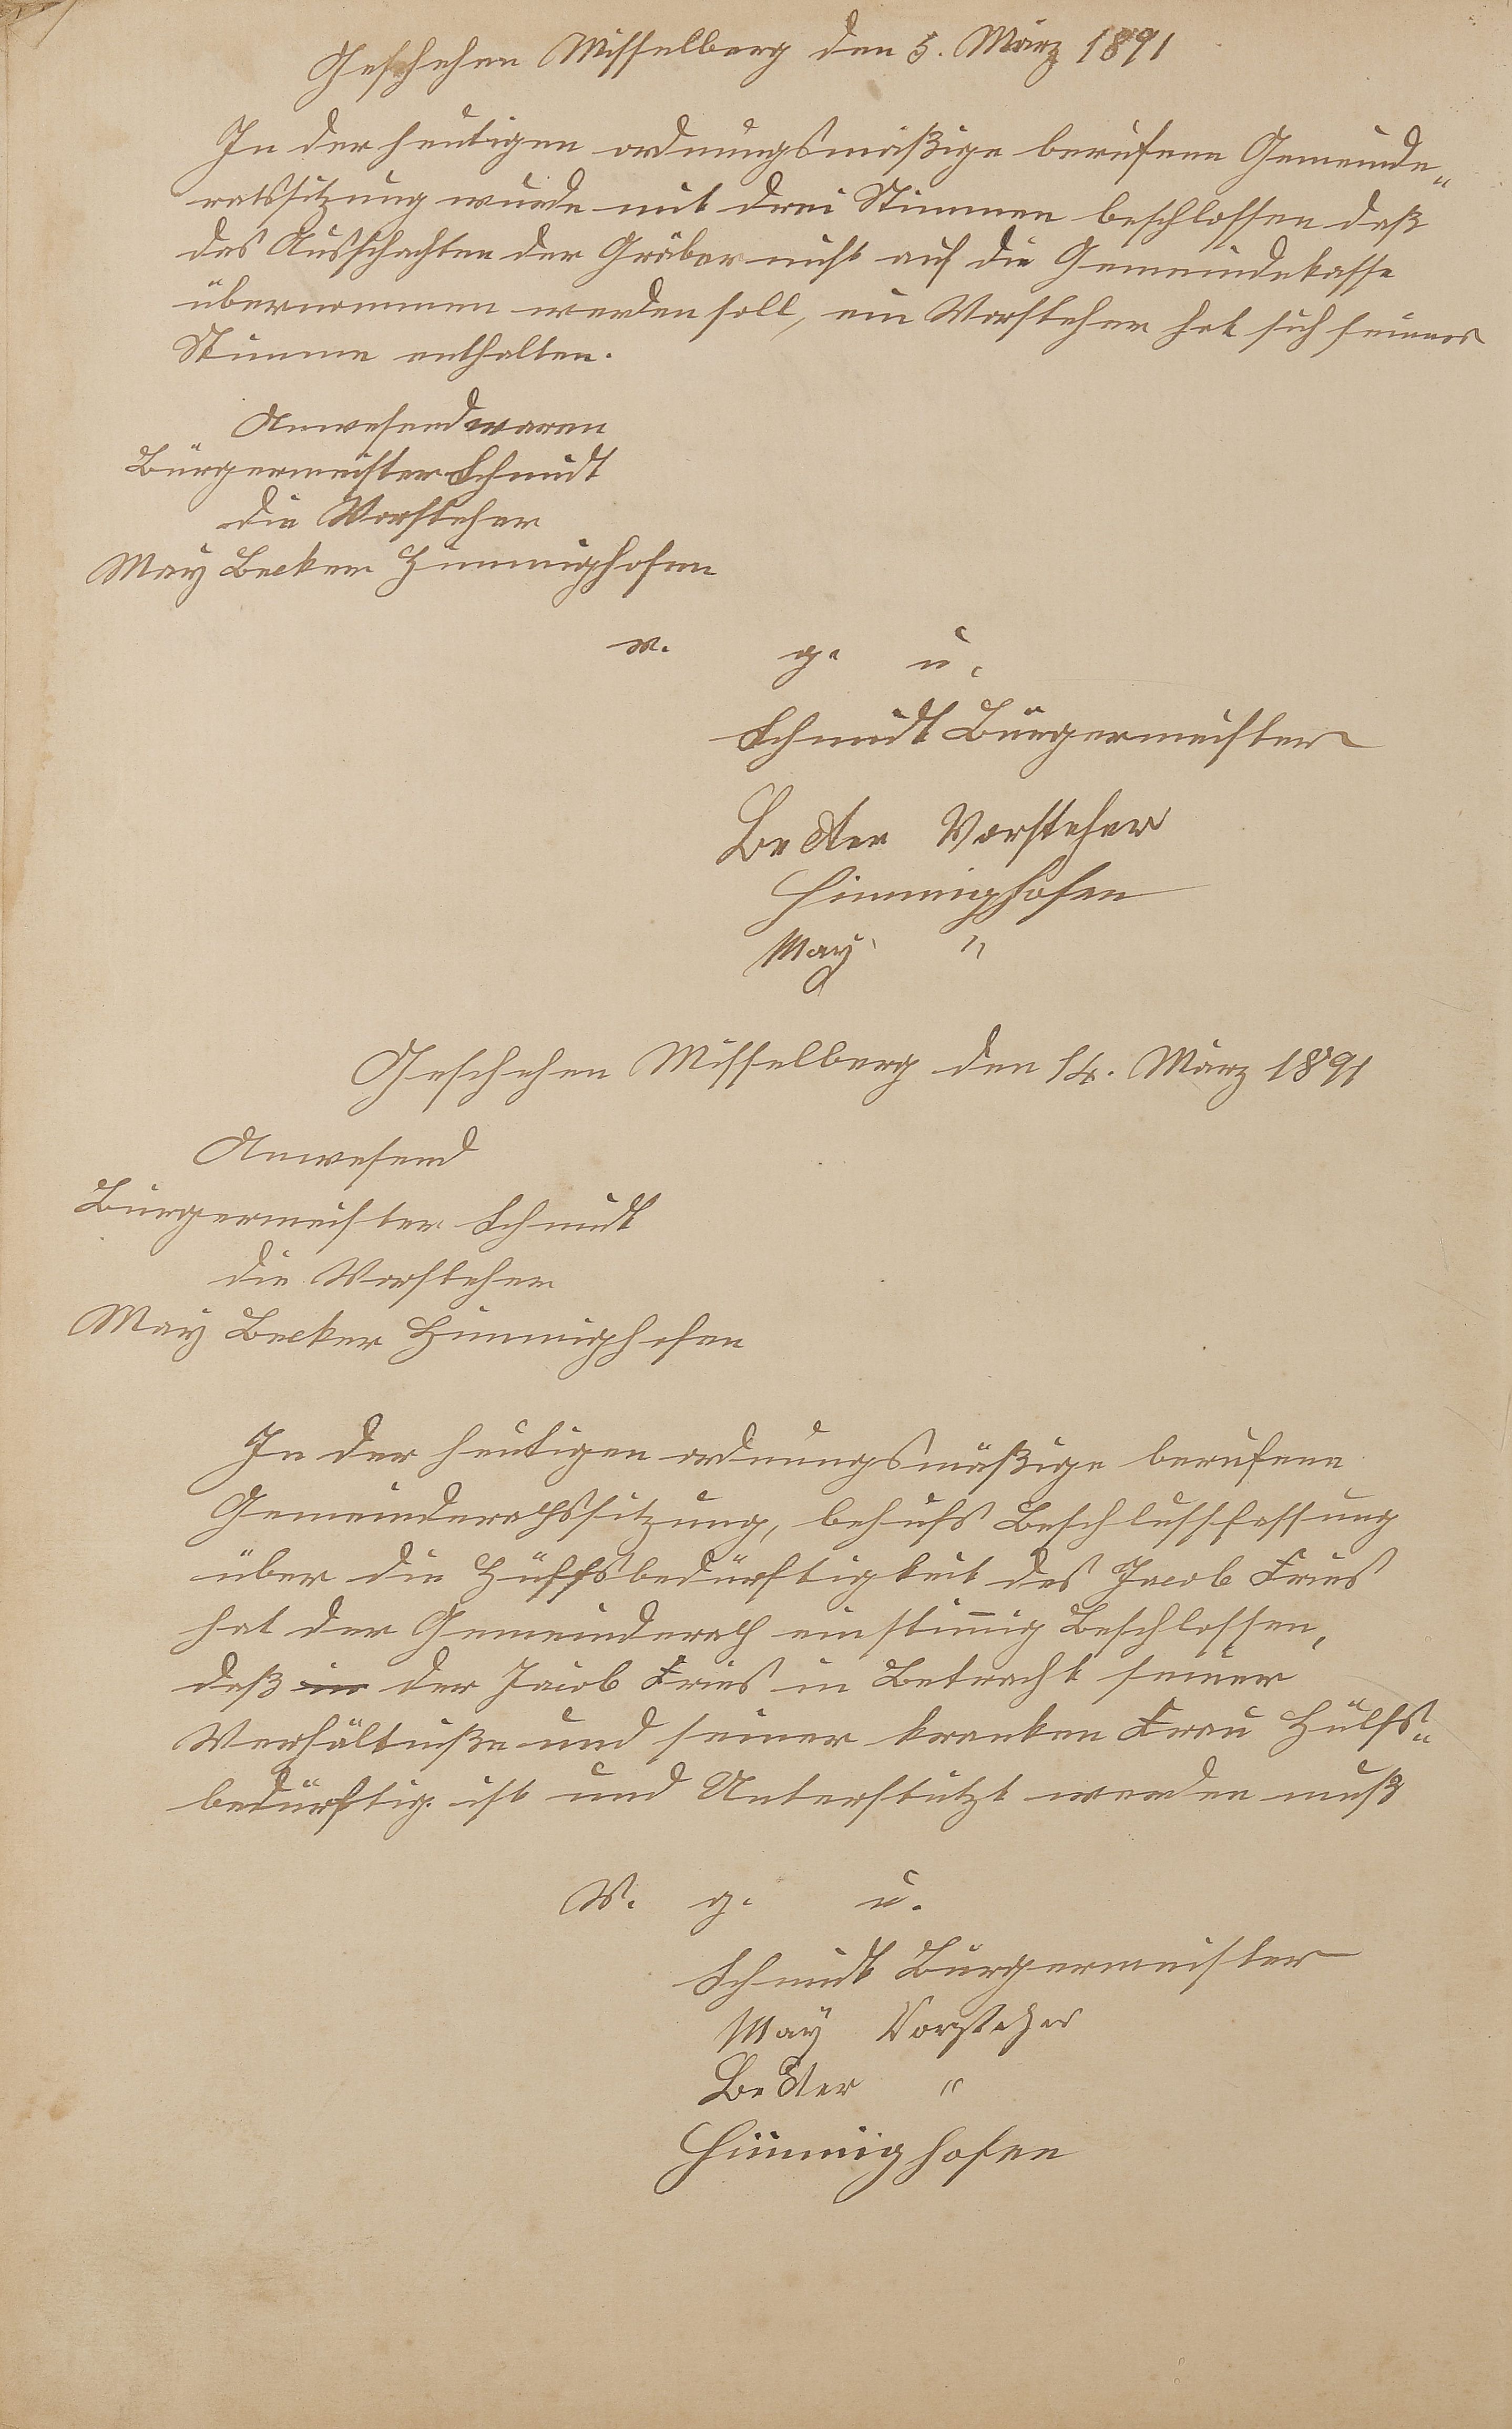 Geschehen Misselberg den 5. März 1891
In der heutigen ordnungsmäßige berufene Gemeinde„
ratssitzung wurde mit drei Stimmen beschlossen daß
das Ausschachten der Gräber nicht auf die Gemeindekasse
übernommen werden soll, ein Vorsteher hat sich seiner
Stimme enthalten.
Anwesend waren
Bürgermeister Schmidt
die Vorsteher
May Becker Himmighofen
v. g. u.
Schmidt Bürgermeister
Becker Vorsteher
Himmighofen
May "
Geschehen Misselberg den 14. März 1891
Anwesend
Bürgermeister Schmidt
die Vorsteher
May Becker Himmighofen
In der heutigen ordnungsmäßige berufene
Gemeinderathssitzung, behufs Beschlussfassung
über die Hülfsbedürftigkeit des Jacob Fries
hat der Gemeinderath einstim̅ig Beschlossen,
daß in der Jacob Fries in Betracht seiner
Verhältniße und seiner kranken Frau Hülfs„
bedürftig ist und Unterstützt werden muß
V. g. u.
Schmidt Bürgermeister
May Vorsteher
Becker "
Himmighofen